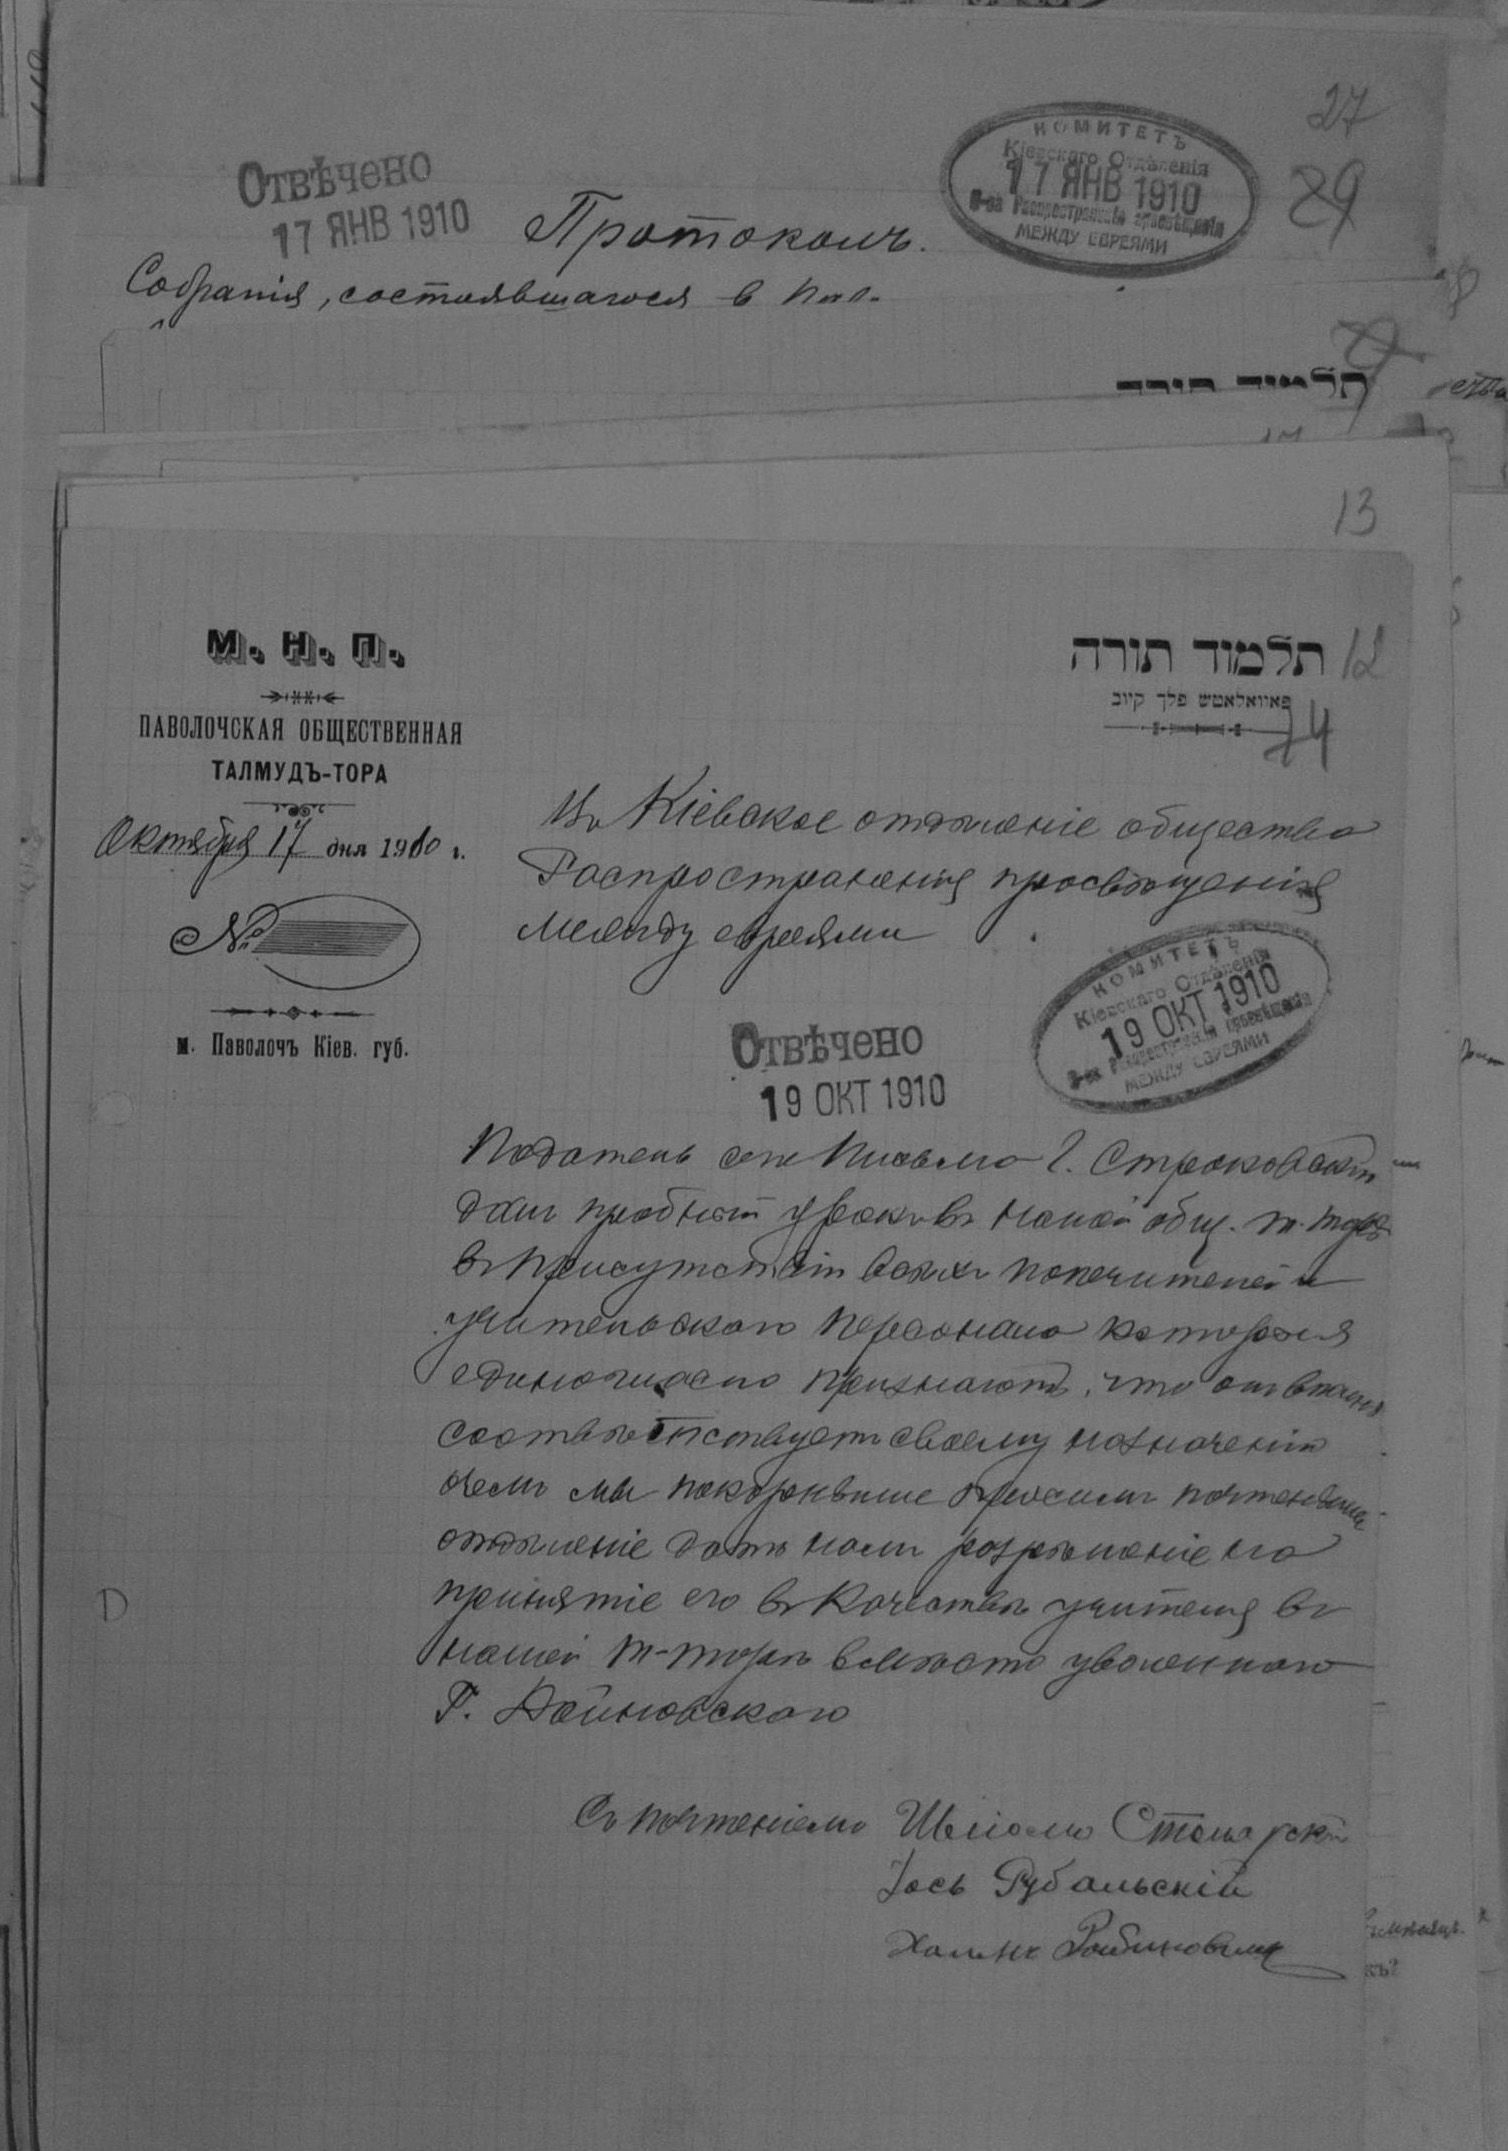 27
КОМИТЕТЪ
Кіевскаго Отдѣленія
17 ЯНВ 1910
О-ва Распространенія просвѣщенія
МЕЖДУ ЕВРЕЯМИ
89
Отвѣчено
17 ЯНВ 1910
Протоколъ.
Собранія, состоявшагося в Пав.
תלמוד תורה
13
М. Н. П.
ПАВОЛОЧСКАЯ ОБЩЕСТВЕННАЯ
ТАЛМУДЪ-ТОРА
Октября 17 дня 1910 г.
№
м. Паволочъ Кіев. губ.
תלמוד תורה
12
פאוואלאטש פלך קיוב
Въ Кіевское отдѣленіе общества
Распространенія просвѣщенія
между евреями
КОМИТЕТЪ
Кіевскаго Отдѣленія
19 ОКТ 1910
О-ва Распространенія просвѣщенія
МЕЖДУ ЕВРЕЯМИ
Отвѣчено
19 ОКТ 1910
Податель сего письма г. Строковскій
далъ пробный урокъ въ нашей общ. т. торѣ
въ присутствіи всѣхъ попечителей и
учительскаго персонала которыя
единогласно признаютъ, что онъ вполнѣ
соотвѣтствуетъ своему назначенію
мы покорнѣйше просимъ
отдѣленіе дать намъ разрѣшеніе на
принятіе его въ качествѣ учителя въ
нашей т-торѣ вмѣсто уволеннаго
Г. Войновскаго
Съ почтеніемъ Шліома Столярскій
Іось Рубальскій
Рабиновичъ
D